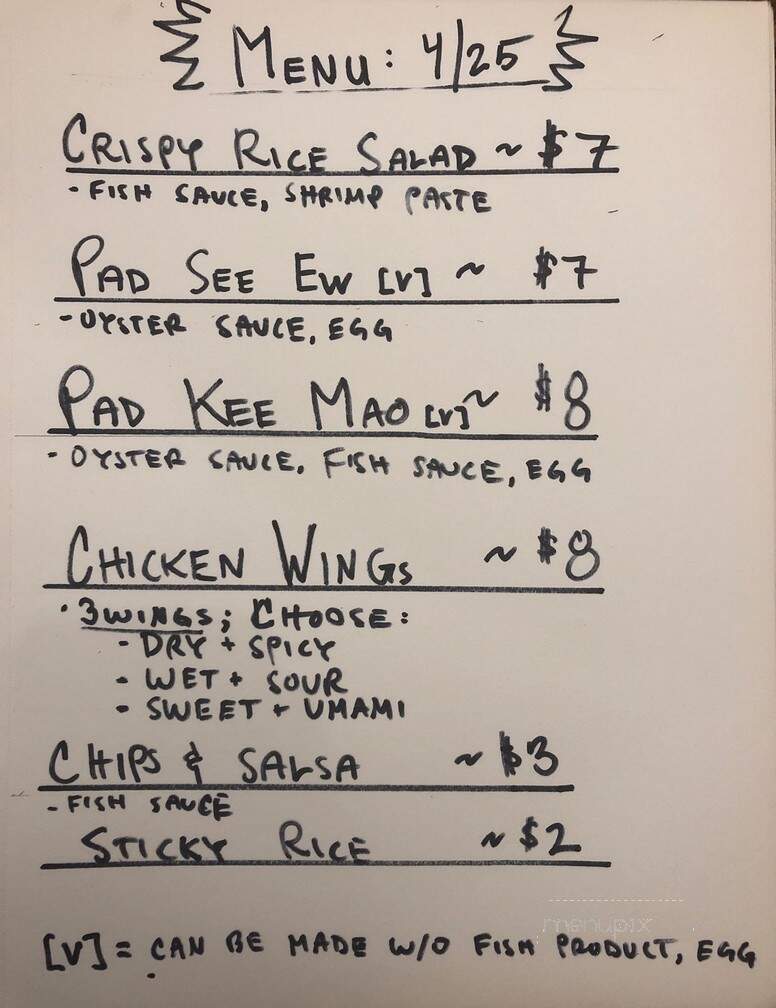 MENU: 4/25
CRISPY RICE SALAD ~ $7
- FISH SAUCE, SHRIMP PASTE
PAD SEE EW [V] ~ $7
- OYSTER SAUCE, EGG
PAD KEE MAO [V] ~ $8
- OYSTER SAUCE, FISH SAUCE, EGG
CHICKEN WINGS ~ $8
· 3 WINGS; CHOOSE:
- DRY + SPICY
- WET + SOUR
- SWEET + UMAMI
CHIPS & SALSA ~ $3
- FISH SAUCE
STICKY RICE ~ $2
menupix
[V] = CAN BE MADE W/O FISH PRODUCT, EGG